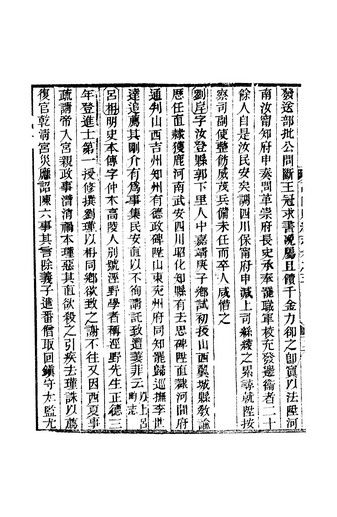 發送部批公問斷王冠求書況屬且饋千金力卻之卽寘以法陞河
南汝甯知府申奏問革崇府長史承奉寵職軍校充發邊衞者二十
餘人自是汝民安矣調四川保甯府申減上司蘇綾之累尋就陞按
察司副使整飭威茂兵備未任而卒人咸惜之
劉岸字汝登縣郭下里人中嘉靖庚子鄉試初授山西翼城縣敎諭
歷任直隸獲鹿河南武安四川昭化知縣有去思碑陞直隸河間府
通判山西吉州知州有德政碑陞山東兗州府同知罷歸巡撫李世
達追薦其剛介有爲事集民安直以不徇請托致遭萋菲云已上呂畸志
呂柟明史本傳字仲木高陵人別號涇野學者稱涇野先生正德三
年登進士第一授修撰劉瑾以柟同鄉欲致之謝不往又因西夏事
疏請帝入宮親政事潛消禍本瑾惡其直欲殺之引疾去瑾誅以薦
復官乾清宮災應詔陳六事其言除義子遣番僧取回鎮守太監尤